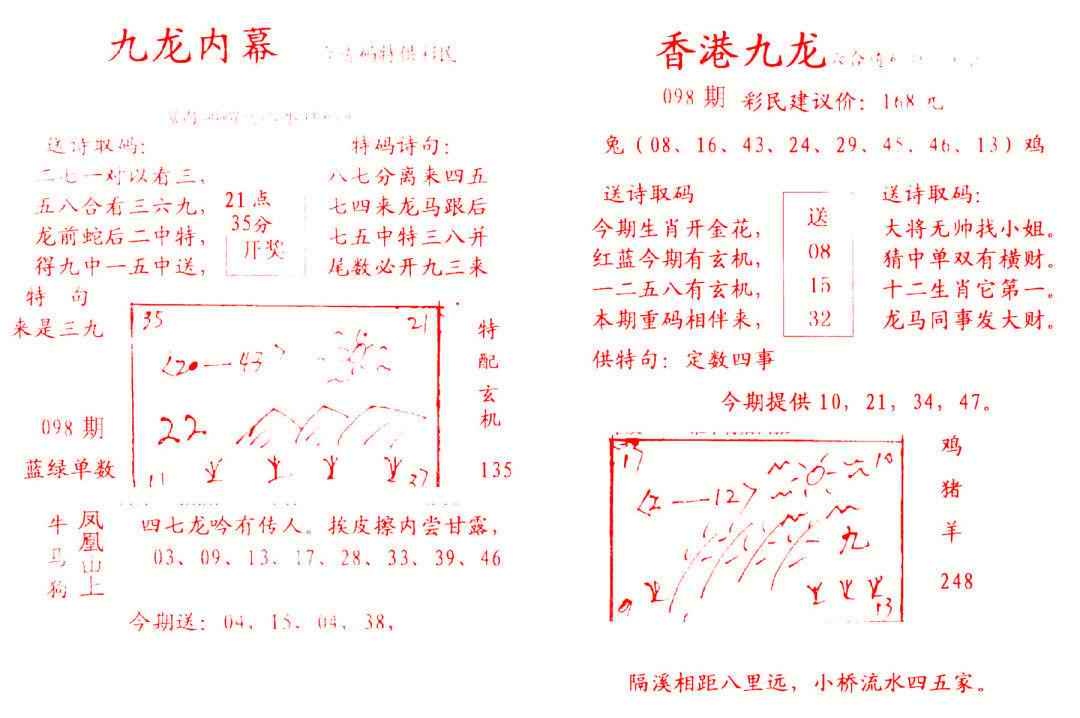 九龙内幕
送诗取码：
二七一对以看三，
五八合看三六九，
龙前蛇后二中特，
得九中一五中送，
21点
35分
开奖
特码诗句：
八七分离来四五
七四来龙马跟后
七五中特三八并
尾数必开九三来
特 句
来是三九
098期
蓝绿单数
35 21
20—43
22
11 37
特
配
玄
机
135
牛
马
狗
凤
凰
山
上
四七龙吟有传人。挨皮擦内尝甘露，
03、09、13、17、28、33、39、46
今期送：04、15、04、38，
香港九龙
098期 彩民建议价：168元
兔（08、16、43、24、29、45、46、13）鸡
送诗取码
今期生肖开金花，
红蓝今期有玄机，
一二五八有玄机，
本期重码相伴来，
送
08
15
32
送诗取码：
大将无帅找小姐。
猜中单双有横财。
十二生肖它第一。
龙马同事发大财。
供特句：定数四事
今期提供10，21，34，47。
17 10
〈2—12〉
九
9 13
鸡
猪
羊
248
隔溪相距八里远，小桥流水四五家。